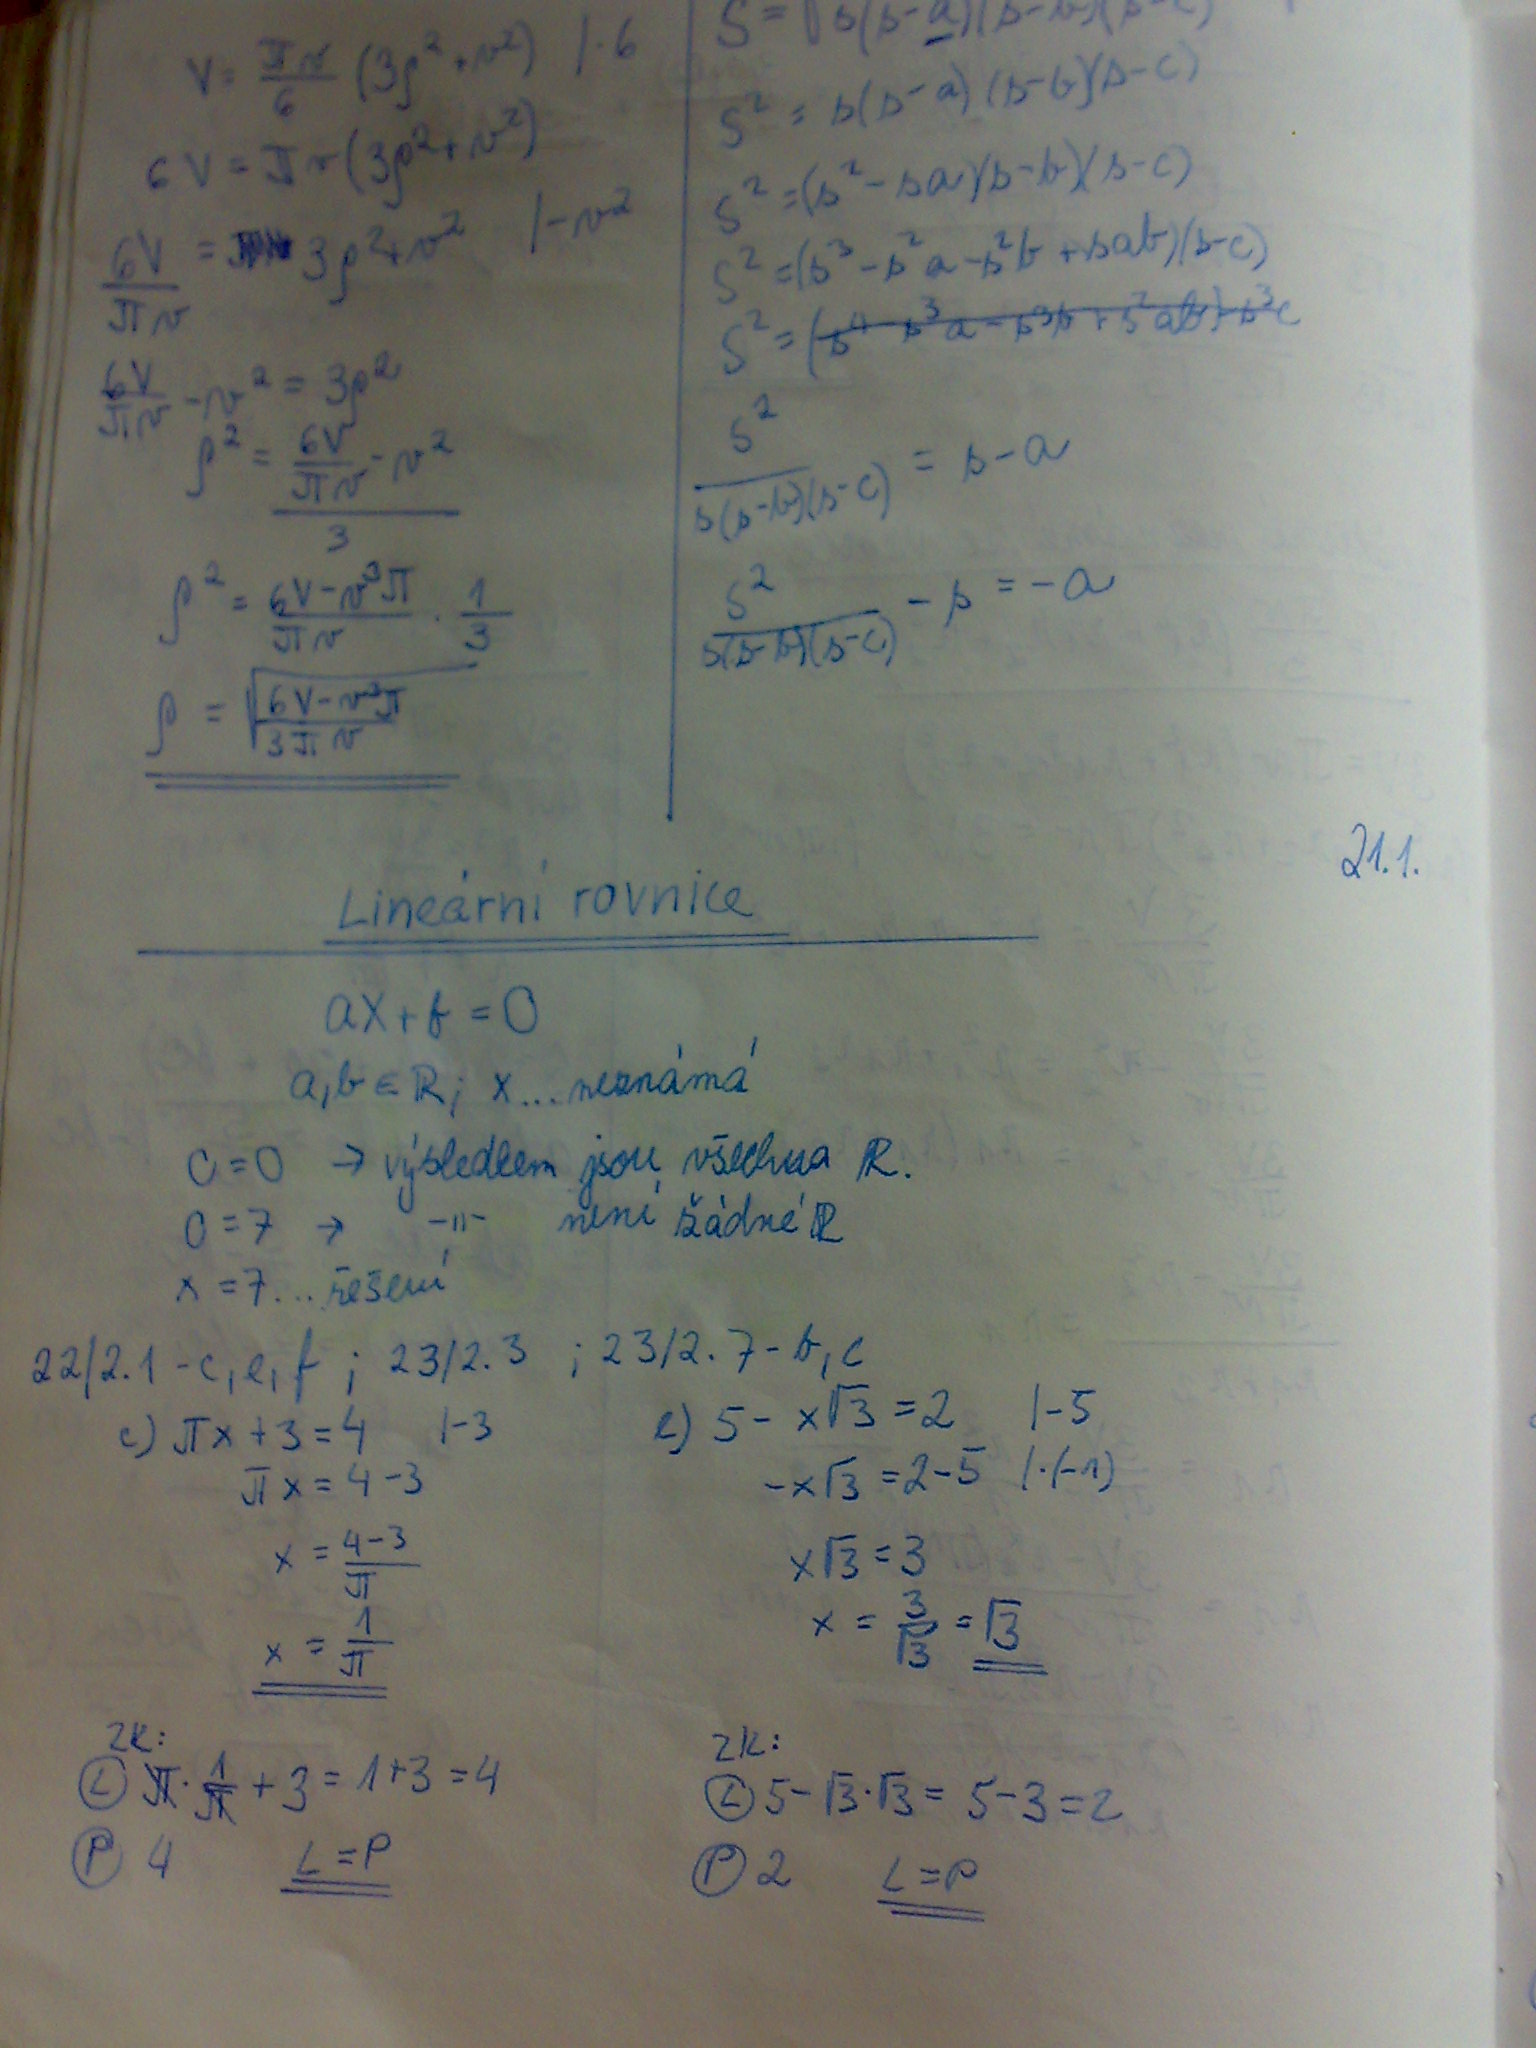 V = πv/6 (3ρ² + v²) |·6
6V = πv(3ρ² + v²)
6V/πv = 3ρ² + v² |-v²
6V/πv - v² = 3ρ²
ρ² = (6V/πv - v²)/3
ρ² = (6V - v³π)/πv · 1/3
ρ = √((6V - v³π)/(3πv))
S = √s(s-a)(s-b)(s-c)
S² = s(s-a)(s-b)(s-c)
S² = (s² - sa)(s-b)(s-c)
S² = (s³ - s²a - s²b + sab)(s-c)
S² = (s⁴ - s³a - s³b + s²ab) - s³c
S²/(s(s-b)(s-c)) = s - a
S²/(s(s-b)(s-c)) - s = -a
21.1.
Lineární rovnice
ax + b = 0
a, b ∈ ℝ; x... neznámá
0 = 0 → výsledkem jsou všechna ℝ.
0 = 7 → -"- není žádné ℝ
x = 7... řešení
22/2.1 - c, e, f ; 23/2.3 ; 23/2.7 - b, c
c) πx + 3 = 4 |-3
πx = 4 - 3
x = (4-3)/π
x = 1/π
Zk:
Ⓛ π · 1/π + 3 = 1 + 3 = 4
Ⓟ 4 L = P
e) 5 - x√3 = 2 |-5
-x√3 = 2 - 5 |·(-1)
x√3 = 3
x = 3/√3 = √3
Zk:
Ⓛ 5 - √3·√3 = 5 - 3 = 2
Ⓟ 2 L = P